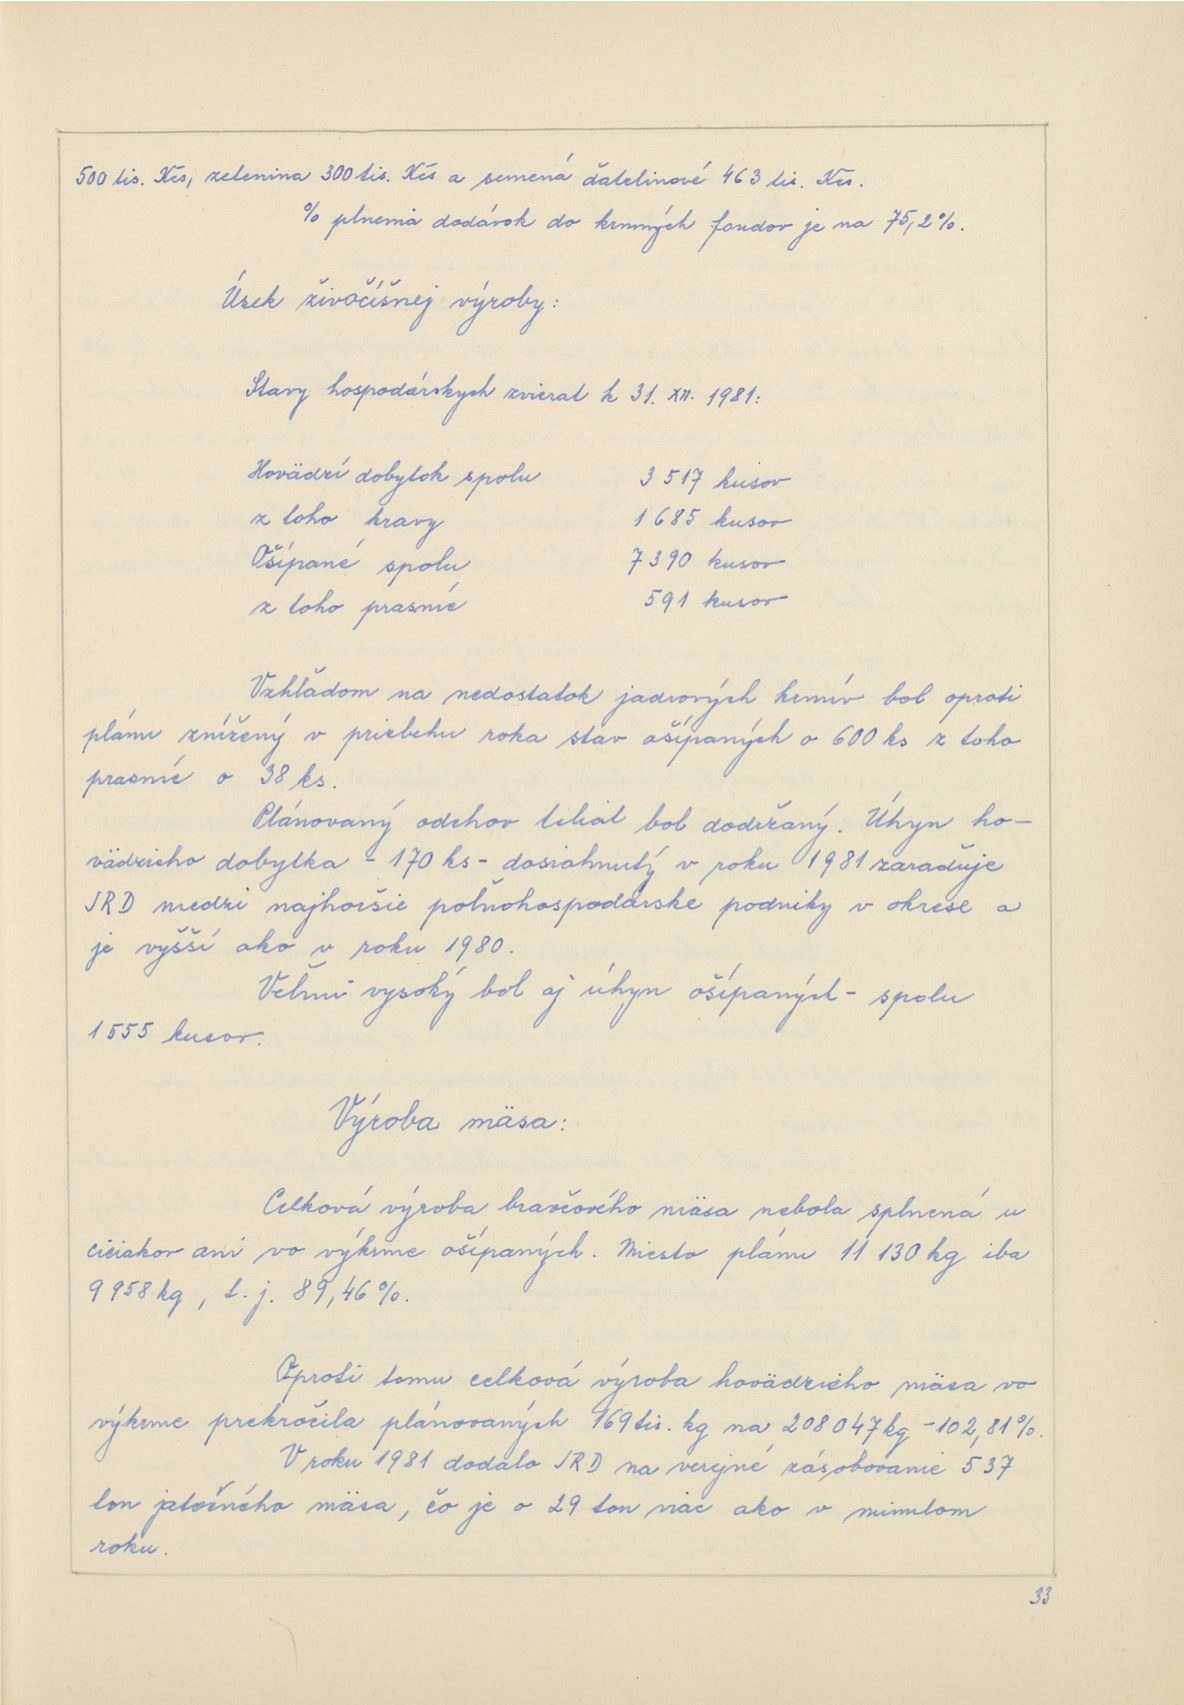 500 tis. Kčs, zelenina 300 tis. Kčs a semená ďatelinové 463 tis. Kčs.
% plnenia dodávok do krmných fondov je na 75,2%.
Úsek živočíšnej výroby:
Stavy hospodárskych zvierat k 31. XII. 1981:
Hovädzí dobytok spolu 3 517 kusov
z toho kravy 1 685 kusov
Ošípané spolu 7 390 kusov
z toho prasnic 591 kusov
Vzhľadom na nedostatok jadrových krmív bol oproti
plánu znížený v priebehu roka stav ošípaných o 600 ks z toho
prasnic o 38 ks.
Plánovaný odchov teliat bol dodržaný. Úhyn ho-
vädzieho dobytka - 170 ks - dosiahnutý v roku 1981 zaraďuje
JRD medzi najhoršie poľnohospodárske podniky v okrese a
je vyšší ako v roku 1980.
Veľmi vysoký bol aj úhyn ošípaných - spolu
1 555 kusov.
Výroba mäsa:
Celková výroba bravčového mäsa nebola splnená u
ciciakov ani vo výkrme ošípaných. Miesto plánu 11 130 kg iba
9 958 kg, t. j. 89,46%.
Oproti tomu celková výroba hovädzieho mäsa vo
výkrme prekročila plánovaných 169 tis. kg na 208 047 kg - 102,81%.
V roku 1981 dodalo JRD na verejné zásobovanie 537
ton jatočného mäsa, čo je o 29 ton viac ako v minulom
roku.
33